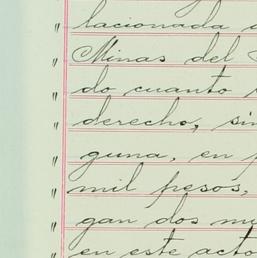 " lacionada
" Minas del
" do cuanto
" derecho, sin
" guna, en
" mil pesos,
" gan dos
" en este acto